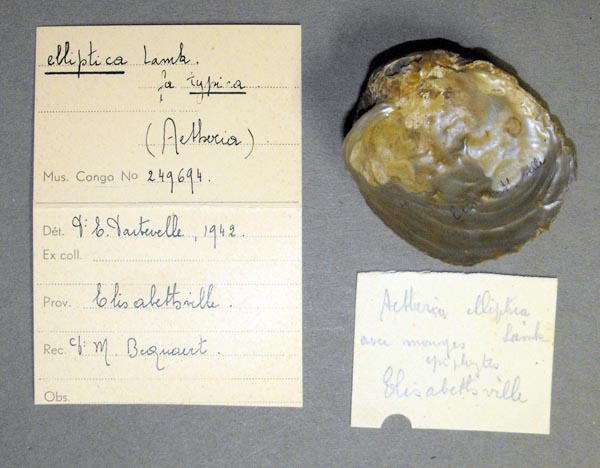 elliptica Lamk.
fa typica
(Aetheria)
Mus. Congo No 249694.
Dét. Dr E. Dartevelle, 1942.
Ex coll.
Prov. Elisabethville.
Rec. M. Bequaert.
Obs.
Aetheria elliptica
Lamk
epiphytes
Elisabethville